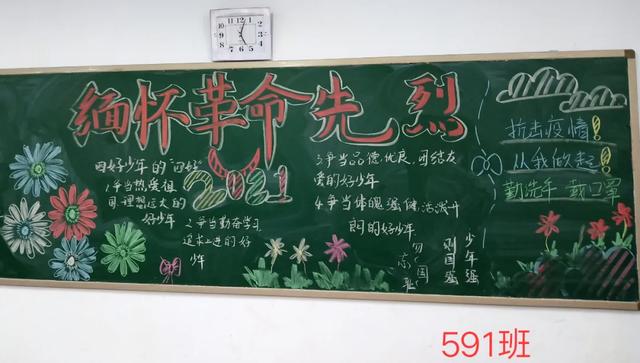 缅怀革命先烈
四好少年的"四好"
2021
1争当热爱祖
国、理想远大的
好少年
2争当勤奋学习
追求上进的好
少年
3争当品德优良、团结友
爱的好少年
4争当体魄强健、活泼开
朗的好少年
勿忘国
少年强
则国强
抗击疫情!
从我做起!
勤洗手 戴口罩
591班